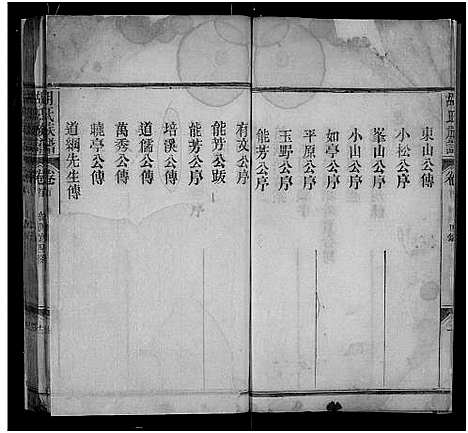 東山公傳
小松公序
峯山公序
小山公序
如亭公序
平原公序
玉野公序
能芳公序
有文公序
能芳公跋
能芳公序
培溪公傳
道儒公傳
萬秀公傳
聽亭公傳
道綱先生傳
胡氏族譜